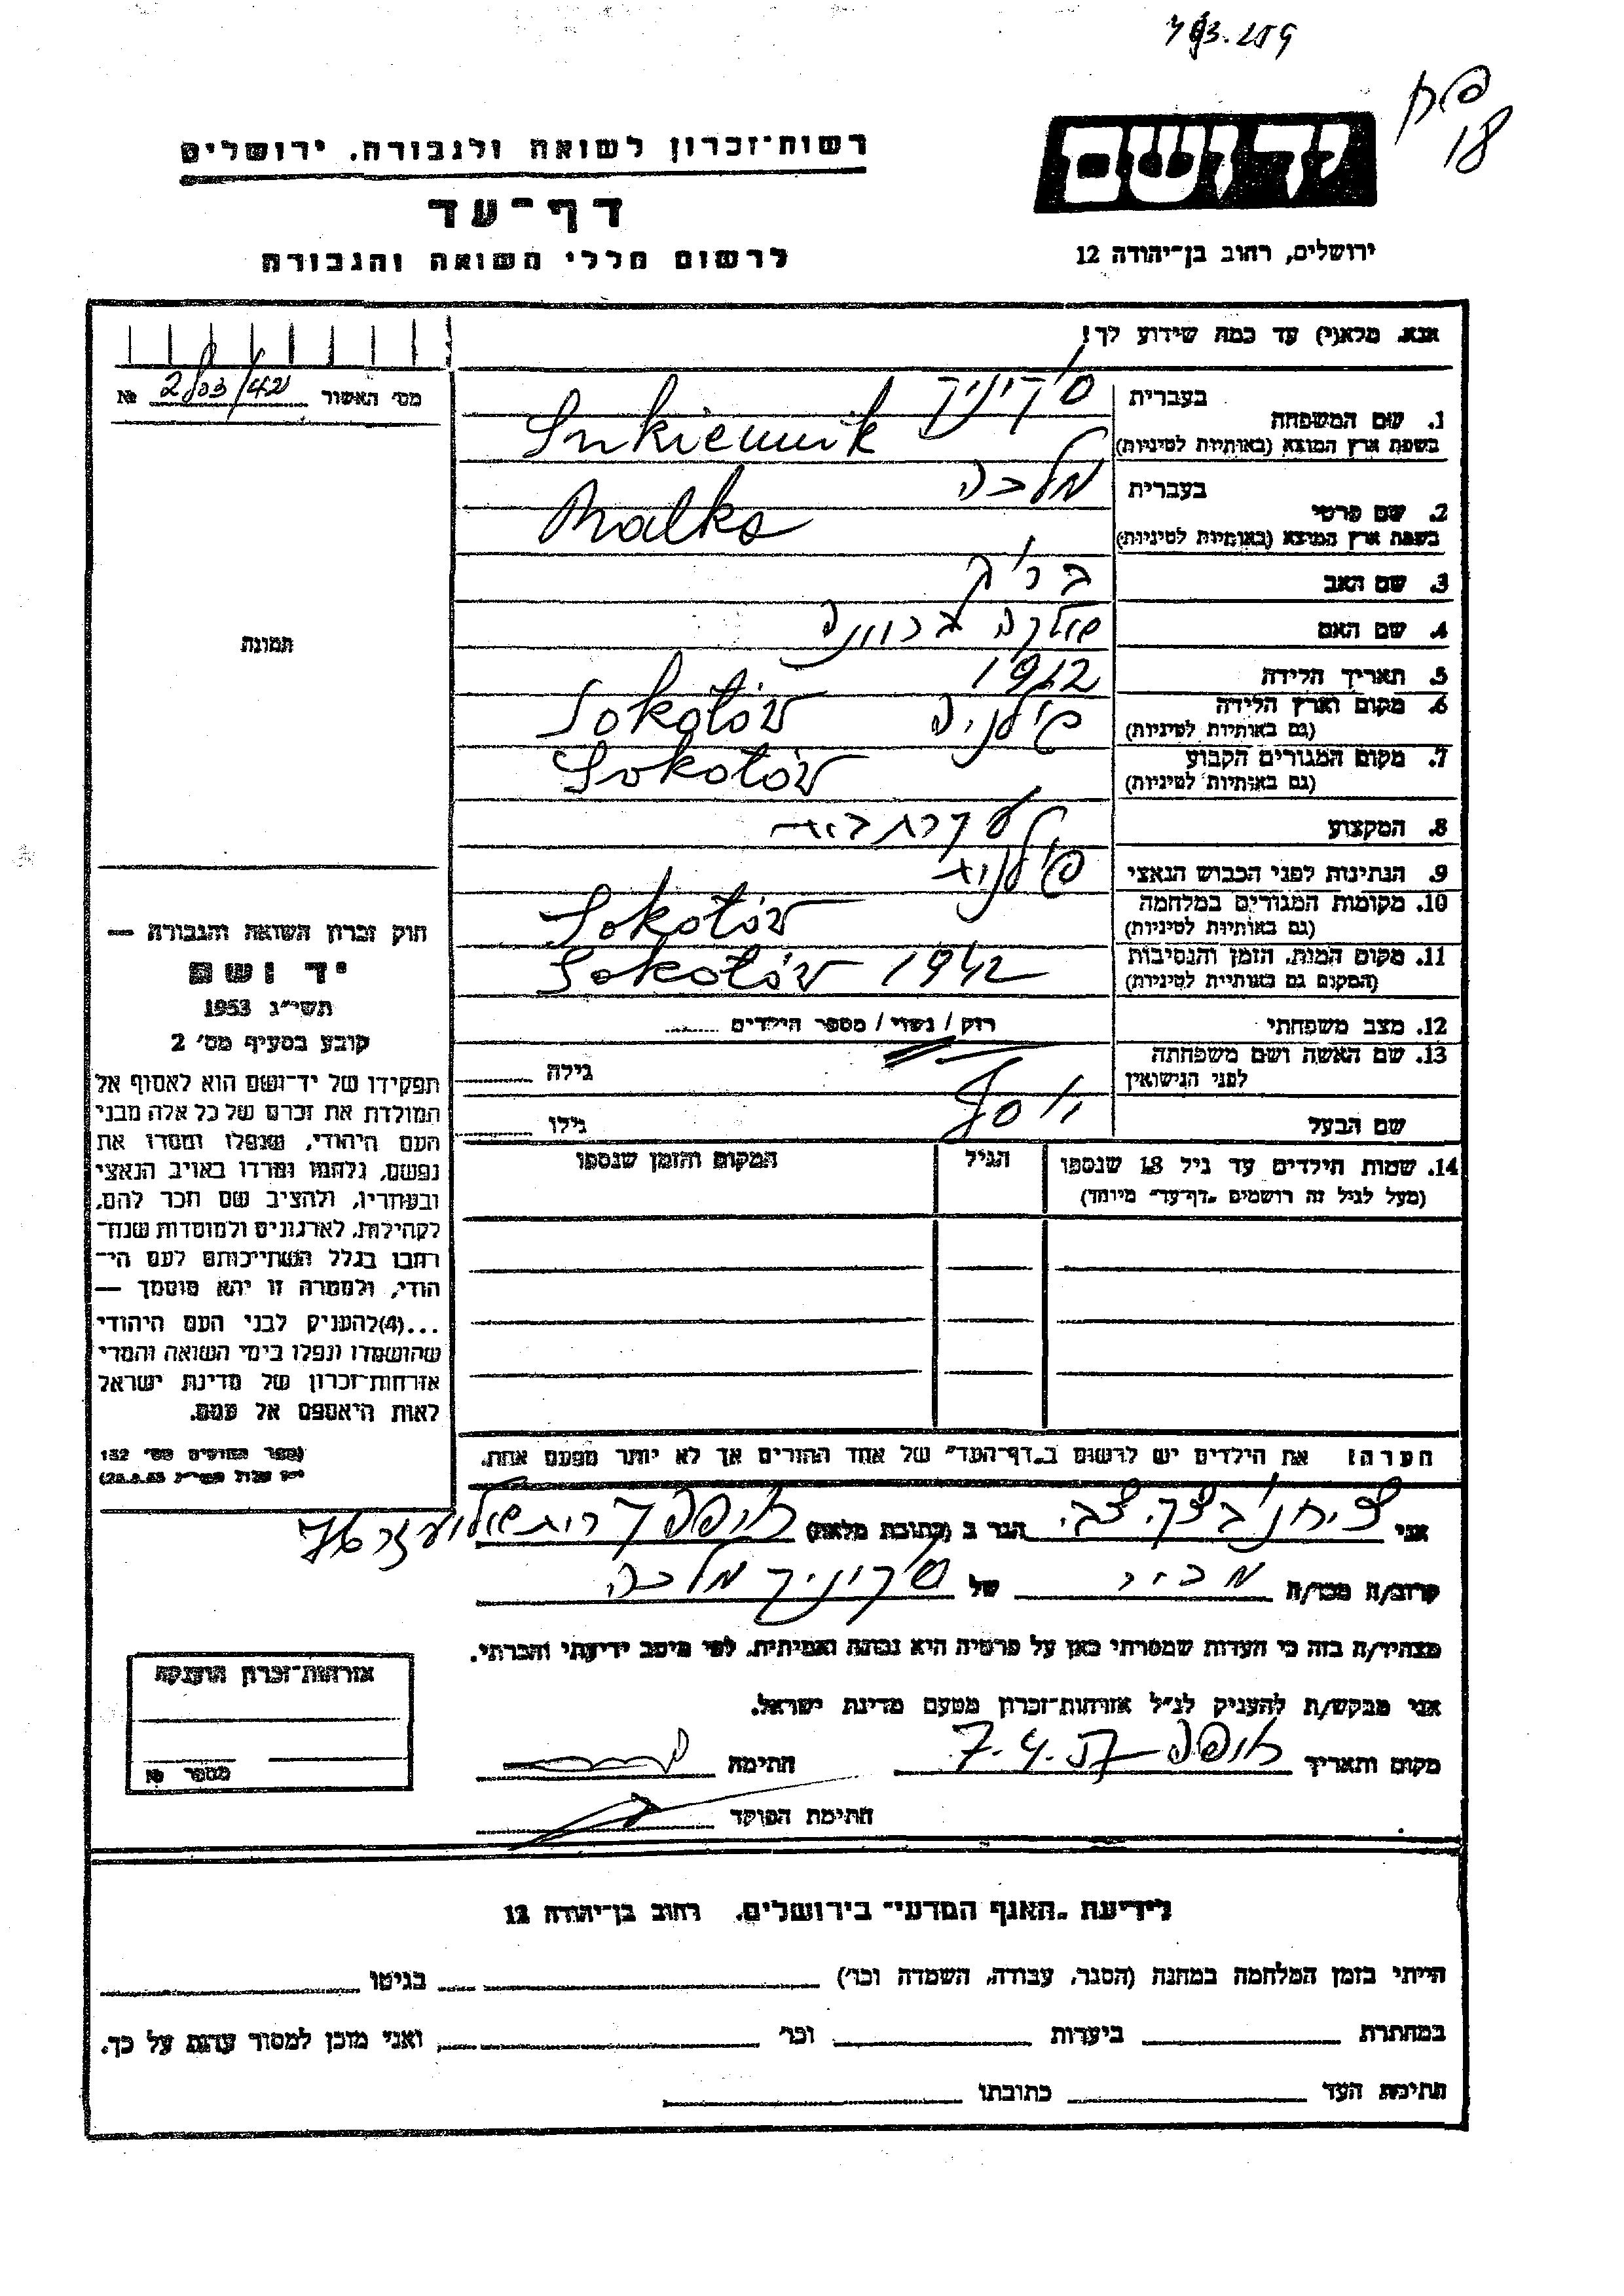 יד ושם
ירושלים, רחוב בן־יהודה 12
רשות־זכרון לשואה ולגבורה, ירושלים
דף־עד
לרשום חללי השואה והגבורה
אנא, מלא(י) עד כמה שידוע לך!
מס׳ האשור № 2803/42
1. שם המשפחה
בעברית
בשפת ארץ המוצא (באותיות לטיניות) Sukiennik
2. שם פרטי
בעברית מלכה
בשפת ארץ המוצא (באותיות לטיניות) Malka
3. שם האב
4. שם האם
5. תאריך הלידה 1912
6. מקום וארץ הלידה Sokołów פולניה
(גם באותיות לטיניות)
7. מקום המגורים הקבוע Sokołów
(גם באותיות לטיניות)
8. המקצוע עקרת בית
9. הנתינות לפני הכבוש הנאצי פולנית
10. מקומות המגורים במלחמה Sokołów
(גם באותיות לטיניות)
11. מקום המות, הזמן והנסיבות Sokołów 1942
(המקום גם באותיות לטיניות)
12. מצב משפחתי רוק / נשוי / מספר הילדים
13. שם האשה ושם משפחתה לפני הנישואין גילה
שם הבעל יוסף גילו
14. שמות הילדים עד גיל 18 שנספו הגיל המקום והזמן שנספו
(מעל לגיל זה רושמים „דף־עד״ מיוחד)
הערה: את הילדים יש לרשום ב„דף־העד״ של אחד ההורים אך לא יותר מפעם אחת.
תמונה
חוק זכרון השואה והגבורה —
יד ושם
תשי״ג 1953
קובע בסעיף מס׳ 2
תפקידו של יד־ושם הוא לאסוף אל
המולדת את זכרם של כל אלה מבני
העם היהודי, שנפלו ומסרו את
נפשם, נלחמו ומרדו באויב הנאצי
ובעוזריו, ולהציב שם וזכר להם,
לקהילות, לארגונים ולמוסדות שנח־
רבו בגלל השתייכותם לעם הי־
הודי, ולמטרה זו יהא מוסמך —
...(4)להעניק לבני העם היהודי
שהושמדו ונפלו בימי השואה והמרי
אזרחות־זכרון של מדינת ישראל
לאות היאספם אל עמם.
(ספר החוקים מס׳ 132
אני צבי הגר ב (כתובת מלאה) חיפה
קרוב/ה מכר/ה מכיר של מלכה
מצהיר/ה בזה כי העדות שמסרתי כאן על פרטיה היא נכונה ואמיתית, לפי מיטב ידיעתי והכרתי.
אני מבקש/ת להעניק לנ״ל אזרחות־זכרון מטעם מדינת ישראל.
מקום ותאריך חיפה 7.4.57 חתימה
חתימת הפוקד
אזרחות־זכרון הוענקה
מספר №
לידיעת „האגף המדעי״ בירושלים, רחוב בן־יהודה 12
הייתי בזמן המלחמה במחנה (הסגר, עבודה, השמדה וכו׳) בגיטו
במחתרת ביערות וכו׳ ואני מוכן למסור עדות על כך.
חתימת העד כתובתו